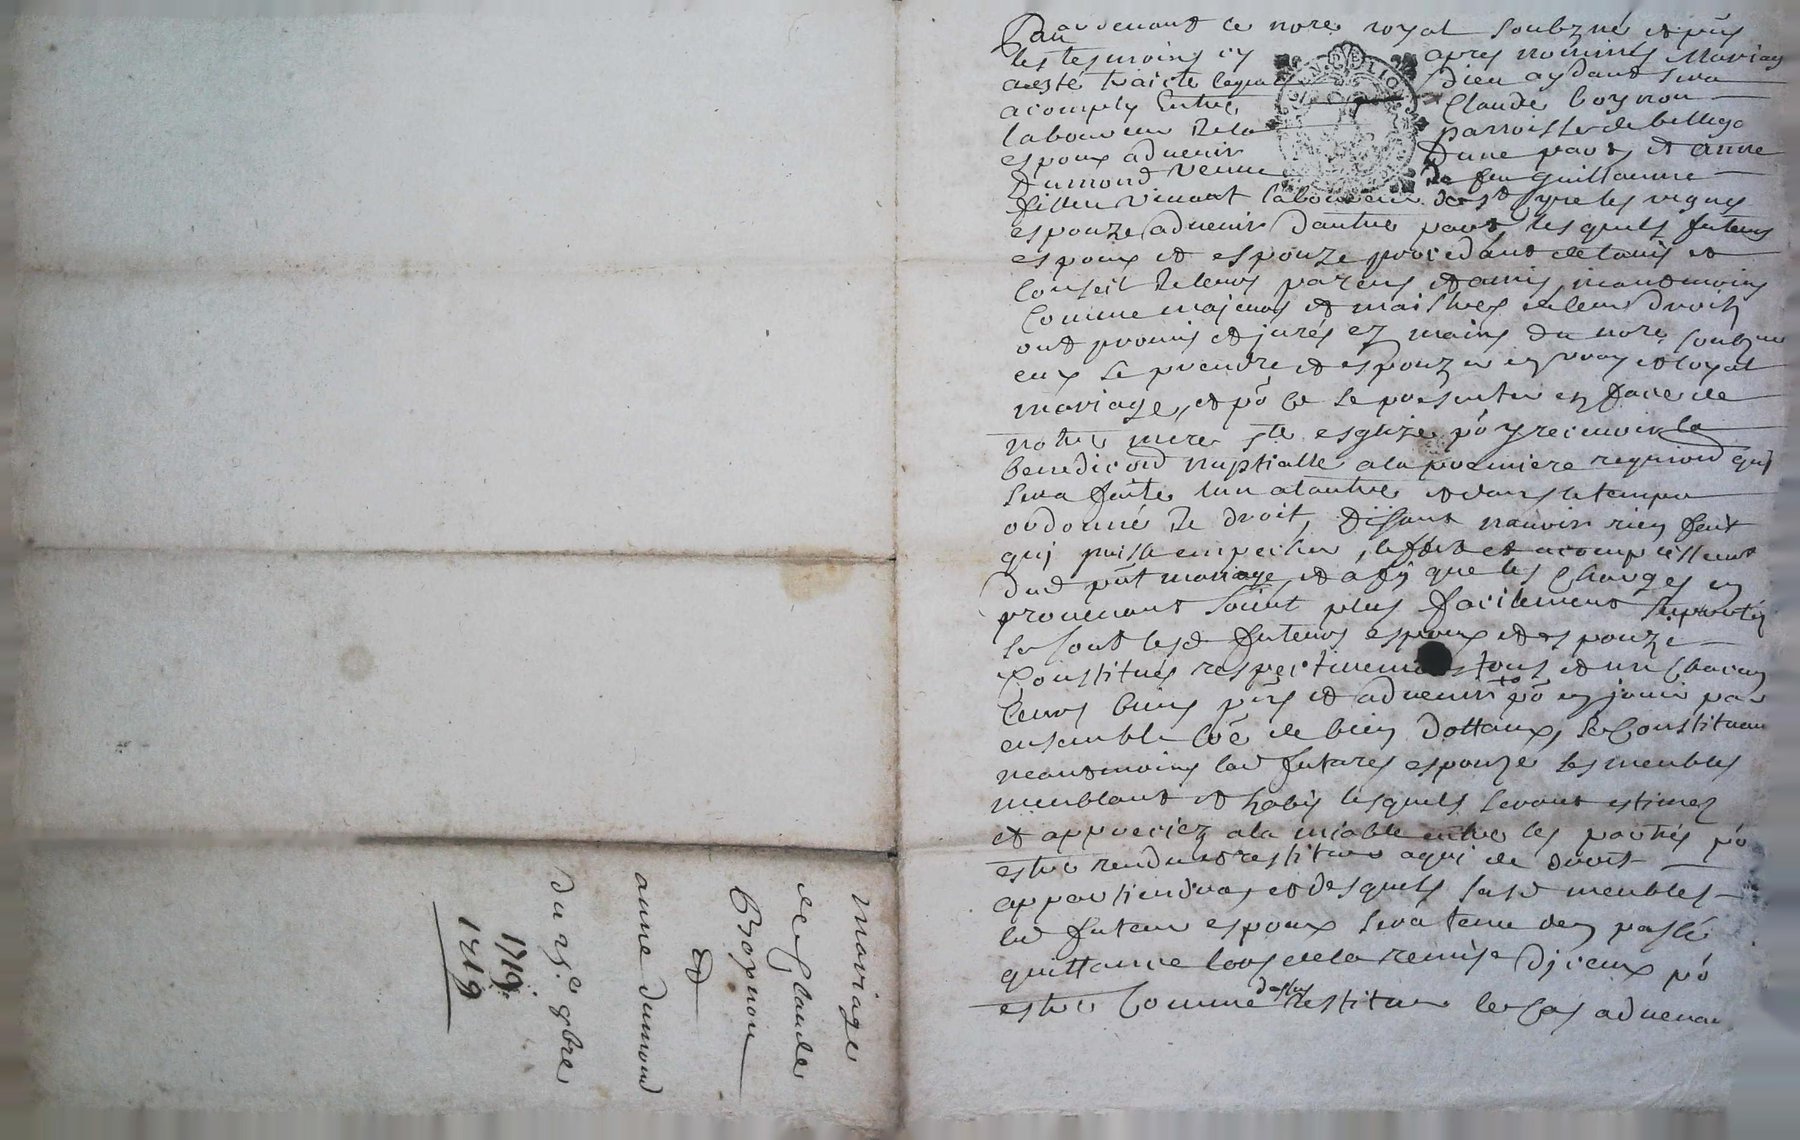 Par devant le nore royal soubzné et pñs
les tesmoins cy apres nommés Mariage
a esté traicté lequel Dieu aydant sera
acomply entre Claude boynon
laboureur de la parroisse de bellega
espoux advenir d'une part, et anne
dumond veuve de feu guillaume
vincent laboureur de st Cyre les vignes
espouze advenir d'autre part, les quels futurs
espoux et espouze procedant de lavis et
Conseil de leurs parens et amis, neantmoins
Comme majeurs et maistres de leur droitz
ont promis et jurés ez mains du nore soubzne
eux se prendre et espouzer en vray et loyal
mariage, et pō ce se presenter en face de
notre mere ste esglize pō y recevoir la
benediction nuptialle a la premiere requision qui
sera faite lun a lautre et dans le temps
ordonné de droit, disant navoir rien fait
qui puisse empecher leffect et acomplissement
dud pñt mariage, et afin que les Charges en
provenant soint plus facilement suportés
se sont lesd futurs espoux et espouze
Constitués respectivement tous et un chacun
leurs biens pñs et advenir pō en jouir par
ensemble cōē de bien dottaux, se Constituan
neantmoins lad future espouze ses meubles
meublant et habis lesquels seront estimez
et appreciez a la miable entre les parties pō
estre rendu et restitue a qui de droit
appartiendra, et desquels susd meubles
led futur espoux sera tenu den passé
quittance lors de la remise dj ceux pō
estre Comme dessus restitue le Cas advenan
mariage
de Claude
Boynon
et
anne dumond
du 25.e 9bre
1719
1719